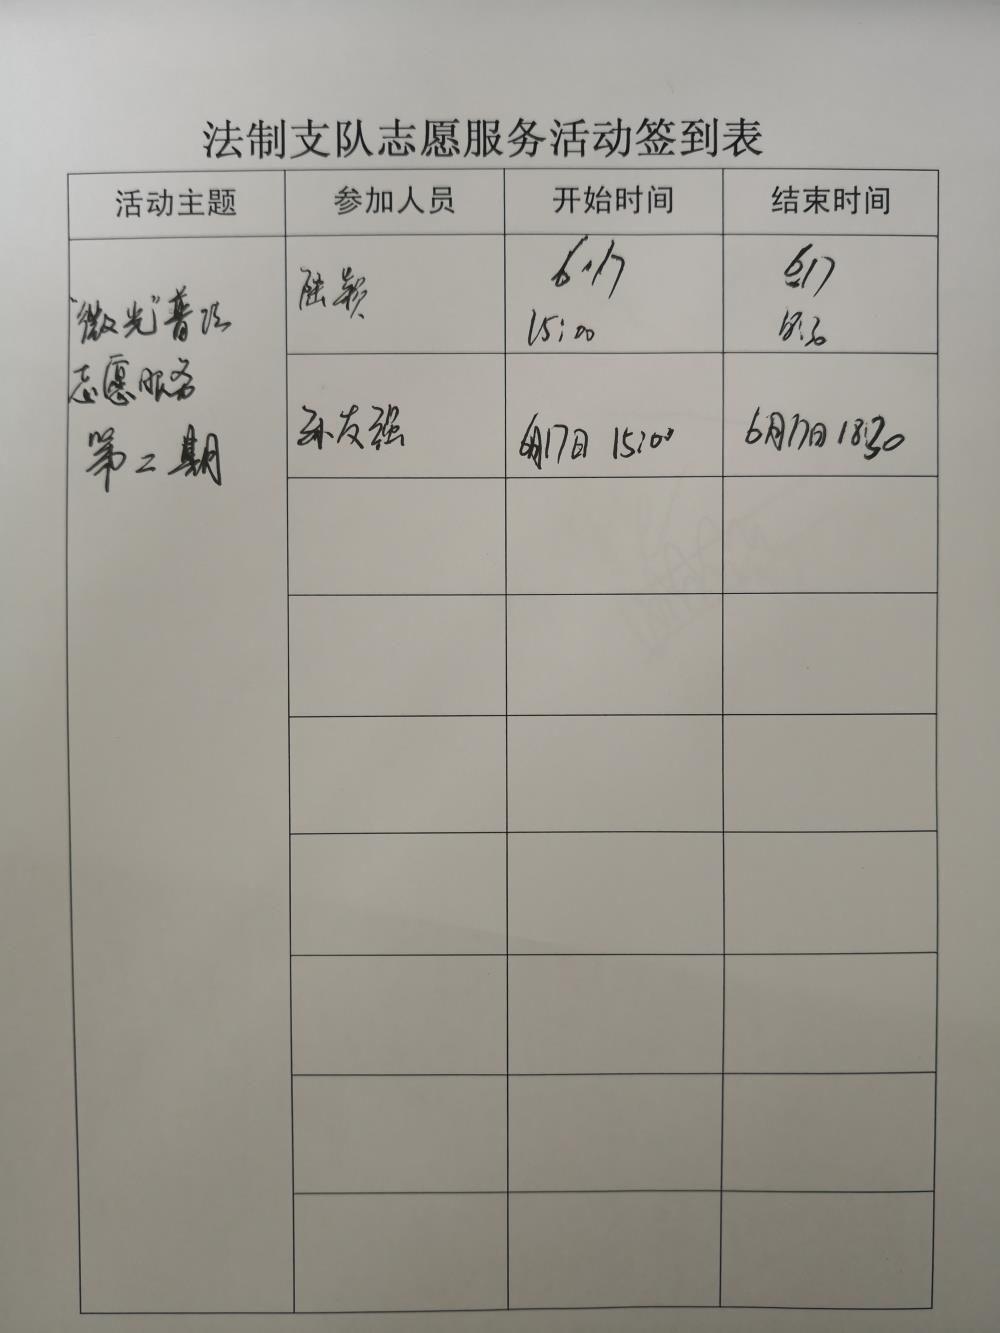 法制支队志愿服务活动签到表
活动主题 参加人员 开始时间 结束时间
"微光"普法
志愿服务
第二期
陆颖 6.17 6.17
15:00 18:30
孙友强 6月17日 15:00 6月17日 18:30